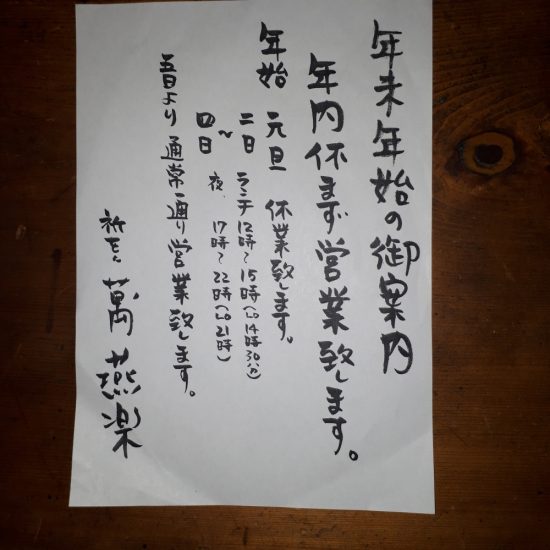 年末年始の御案内
年内休まず営業致します。
年始 元旦 休業致します。
二日 ランチ12時〜15時(L.O 14時30分)
〜
四日 夜 17時〜22時(L.O 21時)
五日より 通常通り営業致します。
萬燕楽